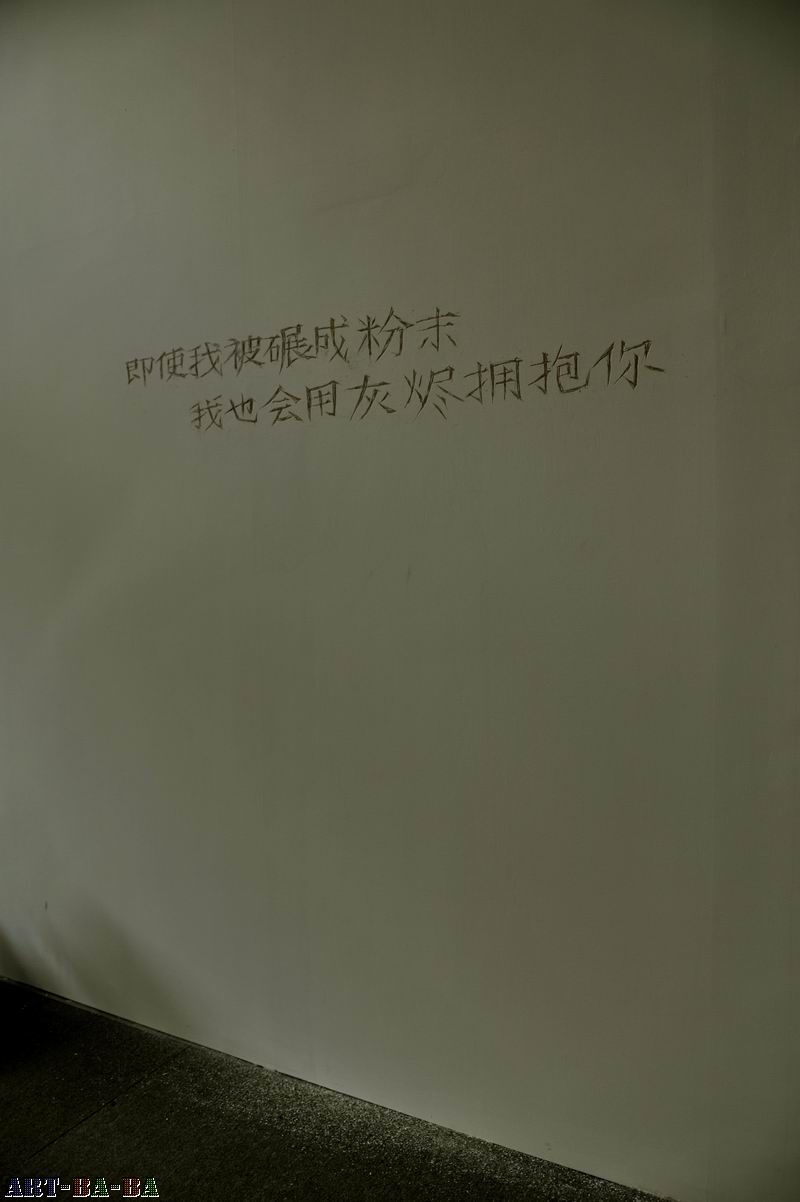 即使我被碾成粉末
我也会用灰烬拥抱你
ART-BA-BA